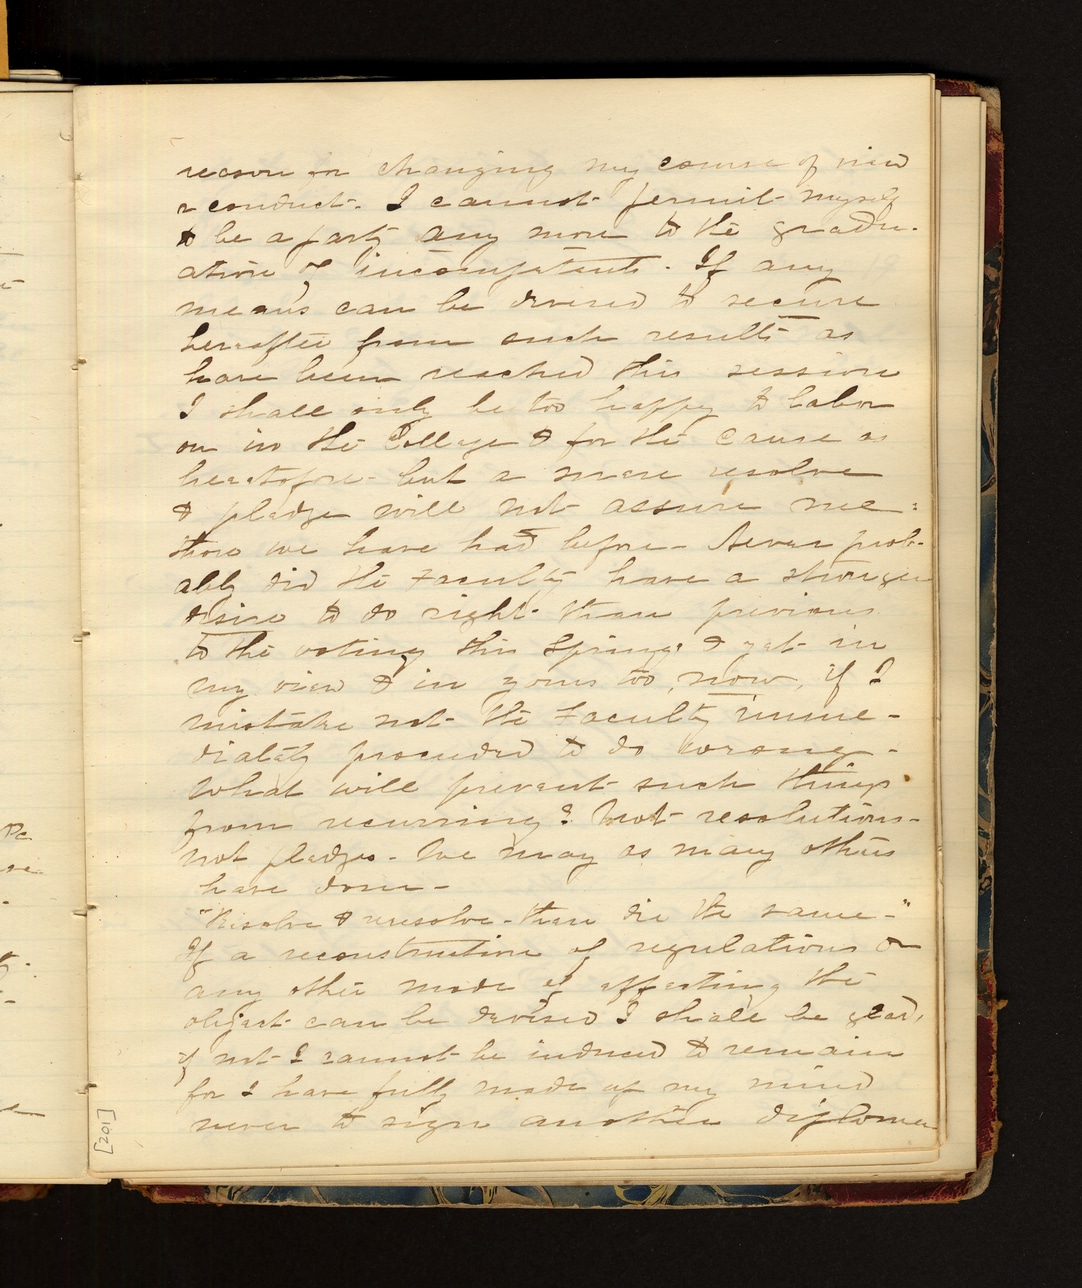 reason for changing my course of mind
& conduct. I cannot permit myself
to be a party any more to the gradu-
ation of incompetents. If any
means can be devised to secure
hereafter from such results as
have been reached this session
I shall only be too happy to labor
on in the College & for the cause as
heretofore - but a mere resolve
& pledge will not assure me:
those we have had before - Never prob-
ably did the Faculty have a stronger
desire to do right than previous
to the voting this Spring: & yet in
my view & in yours too, now, if I
mistake not the Faculty imme-
diately proceeded to do wrong -
What will prevent such things
from recurring? Not resolutions -
not pledges. We may as many others
have done -
"Resolve & reresolve - then die the same -"
If a reconstruction of regulations or
any other mode of affecting the
object can be devised I shall be glad,
if not I cannot be induced to remain
for I have fully made up my mind
never to sign another diploma
[201]